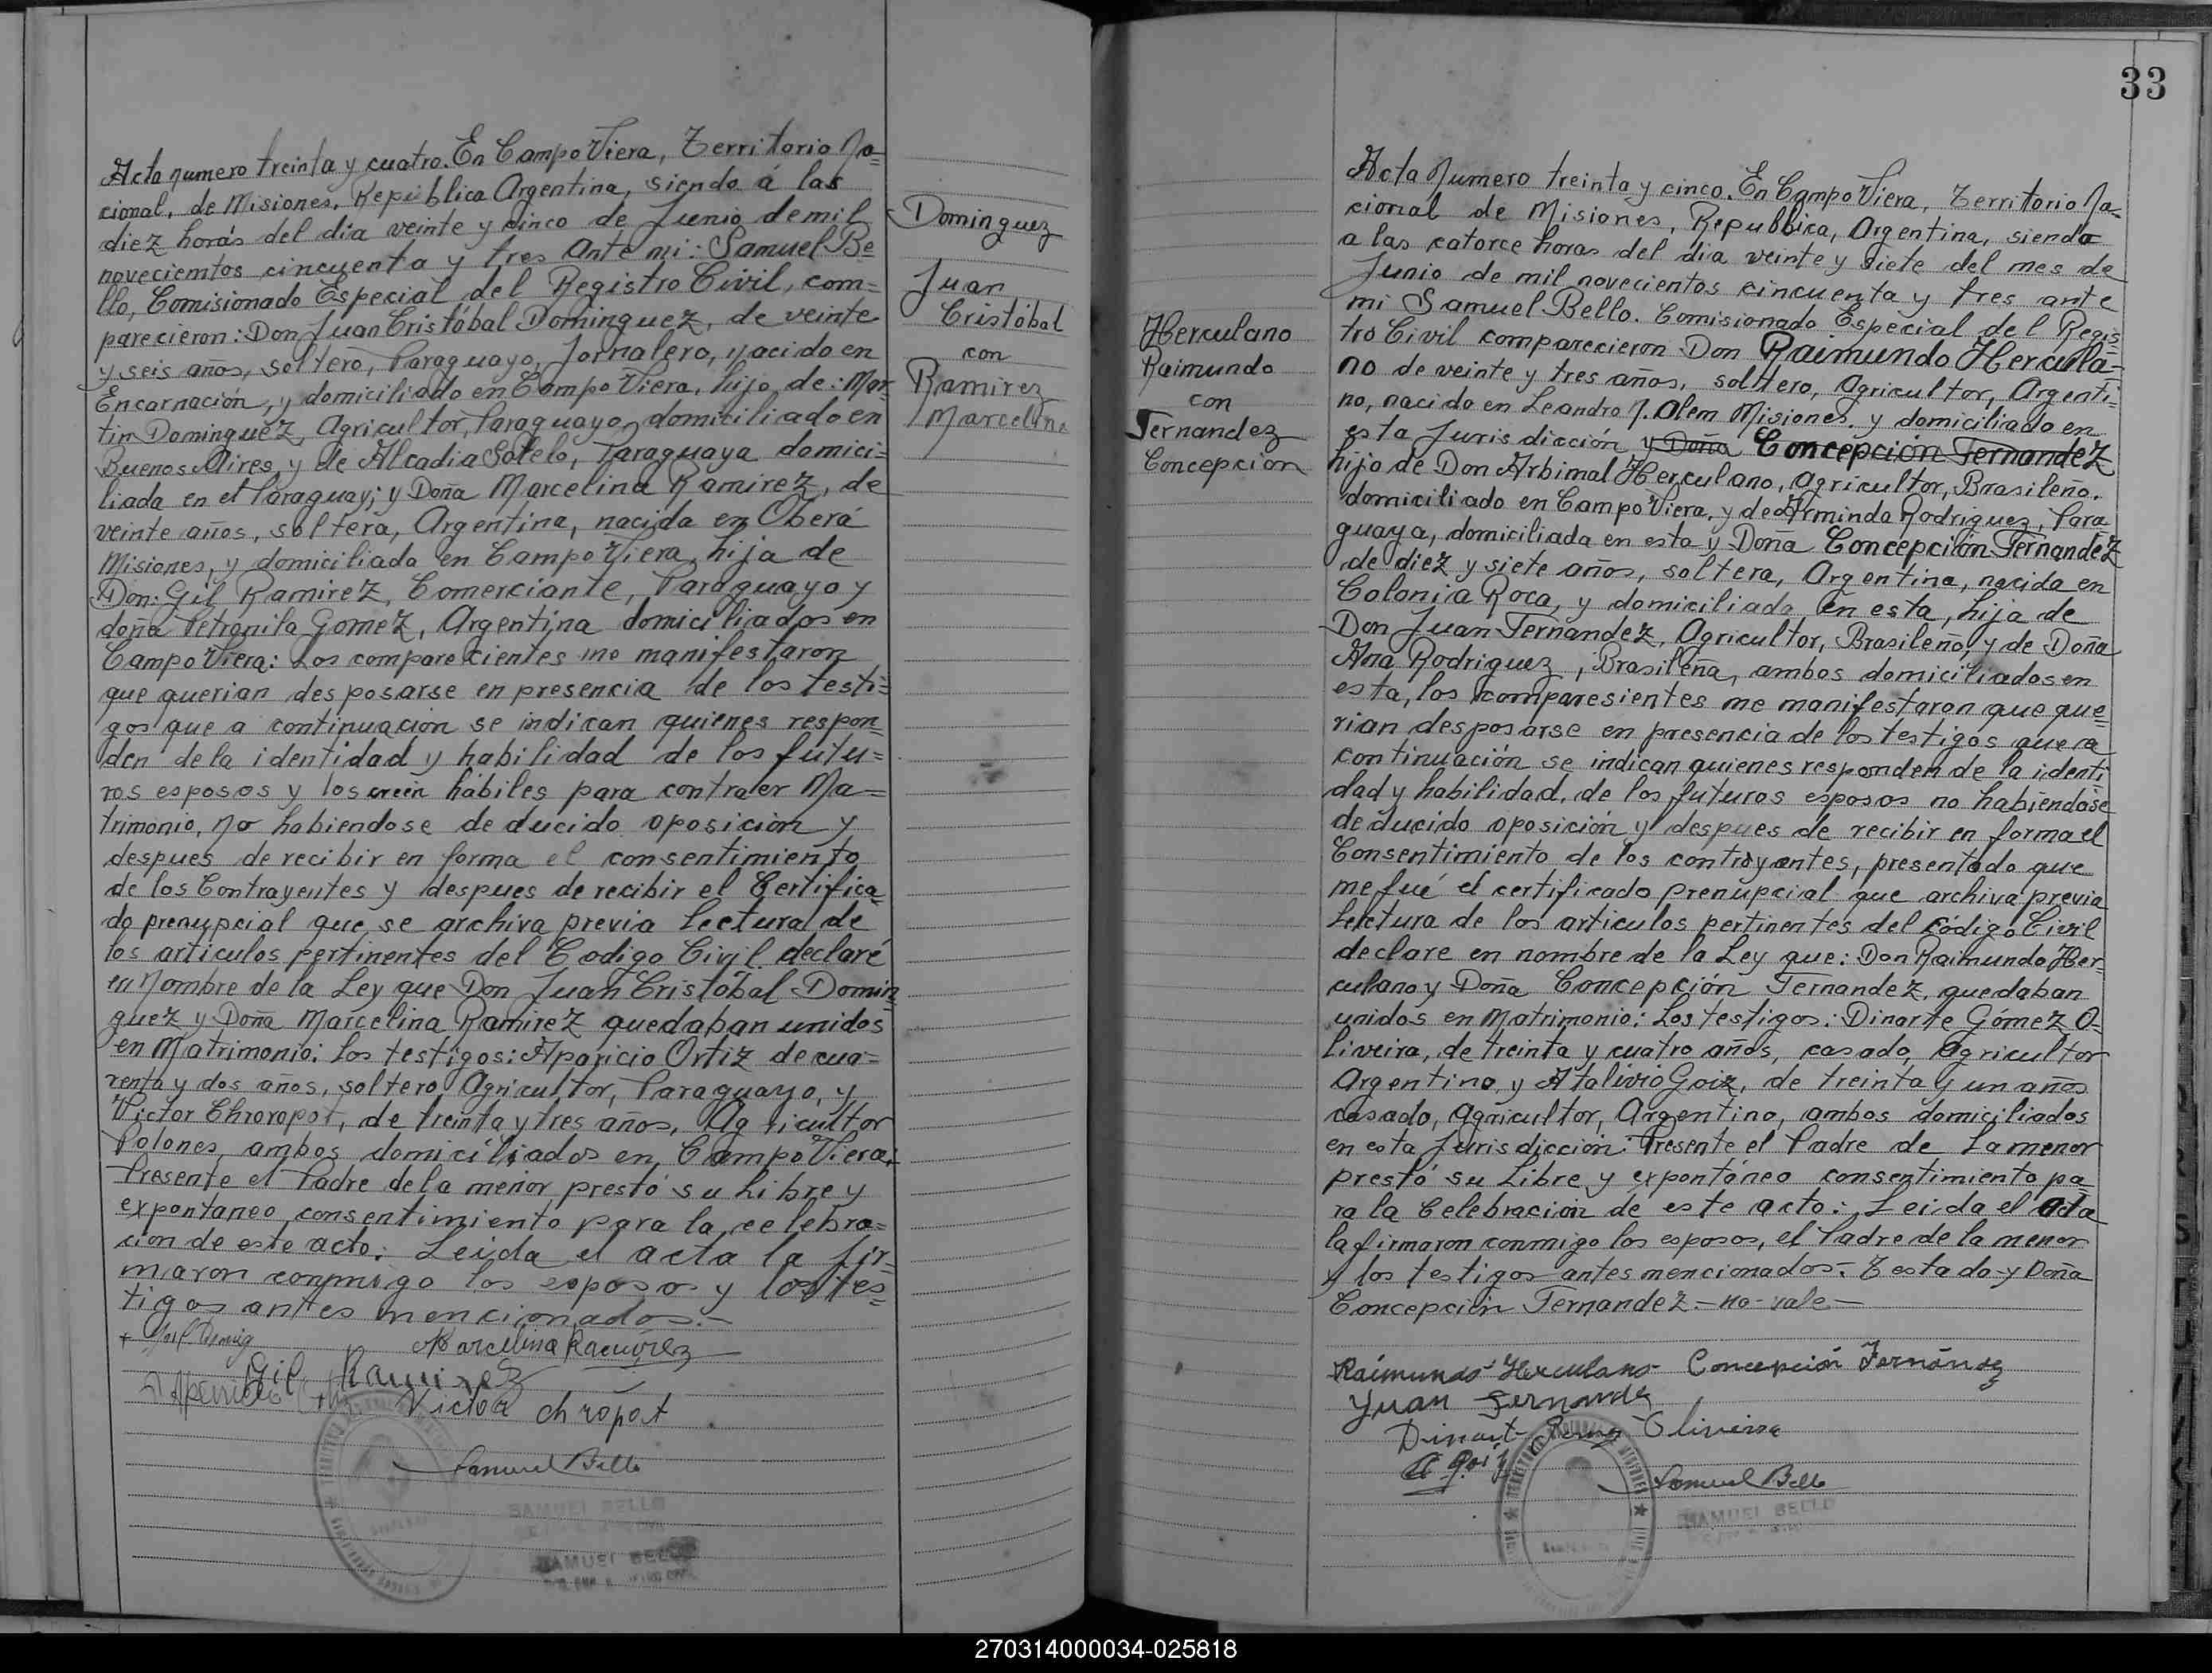 Acta numero treinta y cuatro. En Campo Viera, Territorio Na=
cional, de Misiones. Republica Argentina, siendo á las
diez horas del dia veinte y cinco de Junio de mil
novecientos cincuenta y tres Ante mi: Samuel Be=
llo, Comisionado Especial del Registro Civil, com=
parecieron: Don Juan Cristóbal Dominguez, de veinte
y seis años, soltero, Paraguayo, Jornalero, nacido en
Encarnación, y domiciliado en Campo Viera, hijo de: Mar=
tin Dominguez, Agricultor, Paraguayo, domiciliado en
Buenos Aires, y de Alcadia Sotelo, Paraguaya domici=
liada en el Paraguay; y Doña Marcelina Ramirez, de
veinte años, soltera, Argentina, nacida en Oberá
Misiones, y domiciliada en Campo Viera, hija de
Don: Gil Ramirez, Comerciante, Paraguayo y
doña Petronila Gomez, Argentina domiciliados en
Campo Viera: Los comparecientes me manifestaron
que querian desposarse en presencia de los testi=
gos que a continuación se indican quienes respon=
den de la identidad y habilidad de los futu=
ros esposos y los creen hábiles para contraer Ma=
trimonio, no habiendose deducido oposición y
despues de recibir en forma el consentimiento
de los Contrayentes y despues de recibir el Certifica
do prenupcial que se archiva previa Lectura de
los articulos pertinentes del Codigo Civil declaré
en Nombre de la Ley que Don Juan Cristóbal Domin
guez y Doña Marcelina Ramirez quedaban unidos
en Matrimonio: Los testigos: Aparicio Ortiz de cua=
renta y dos años, soltero, Agricultor, Paraguayo, y
Victor Chroropot, de treinta y tres años, Agricultor
Polones, ambos domiciliados en Campo Viera.
Presente el Padre de la menor prestó su Libre y
expontaneo consentimiento para la celebra=
ción de este acto: Leida el acta la fir=
maron conmigo los esposos y los tes=
tigos antes mencionados.-
Marcelina Ramirez
Gil Ramirez
Victor Chropot
Samuel Bello
SAMUEL BELLO
SAMUEL BELLO
Dominguez
Juan
Cristóbal
con
Ramirez
Marcelina
33
Herculano
Raimundo
con
Fernandez
Concepcion
Acta Numero treinta y cinco. En Campo Viera, Territorio Na-
cional de Misiones, Republica, Argentina, siendo
a las catorce horas del dia veinte y siete del mes de
Junio de mil novecientos cincuenta y tres ante
mi Samuel Bello. Comisionado Especial del Regis=
tro Civil comparecieron Don Raimundo Hercula=
no de veinte y tres años, soltero, Agricultor, Argenti=
no, nacido en Leandro N. Alem Misiones, y domiciliado en
esta Jurisdicción y Doña Concepción Fernandez
hijo de Don Arbimal Herculano, agricultor, Brasileño.
domiciliado en Campo Viera, y de Arminda Rodriguez, Para
guaya, domiciliada en esta y Doña Concepción Fernandez
de diez y siete años, soltera, Argentina, nacida en
Colonia Roca, y domiciliada en esta, hija de
Don Juan Fernandez, Agricultor, Brasileño, y de Doña
Ana Rodriguez, Brasileña, ambos domiciliados en
esta, los comparesientes me manifestaron que que=
rian desposarse en presencia de los testigos que a
continuación se indican quienes responden de la identi
dad y habilidad, de los futuros esposos no habiendose
deducido oposición y despues de recibir en forma el
Consentimiento de los contrayentes, presentado que
me fué el certificado prenupcial que archiva previa
Lectura de los articulos pertinentes del código Civil
declare en nombre de la Ley que: Don Raimundo Her=
culano y Doña Concepción Fernandez, quedaban
unidos en Matrimonio: Los testigos: Dinarte Gómez O=
liveira, de treinta y cuatro años, casado, Agricultor
Argentino, y Atalivio Goiz, de treinta y un años
casado, Agricultor, Argentino, ambos domiciliados
en esta Jurisdicción: Presente el Padre de la menor
prestó su Libre y expontáneo consentimiento pa=
ra la Celebración de este acto: Leida el acta
la firmaron conmigo los esposos, el Padre de la menor
y los testigos antes mencionados: Testado-y Doña
Concepción Fernandez.-no-vale-
Raimundo Herculano Concepción Fernández
Juan Fernande
Dinart Oliveira
Goiz
Samuel Bello
SAMUEL BELLO
270314000034-025818